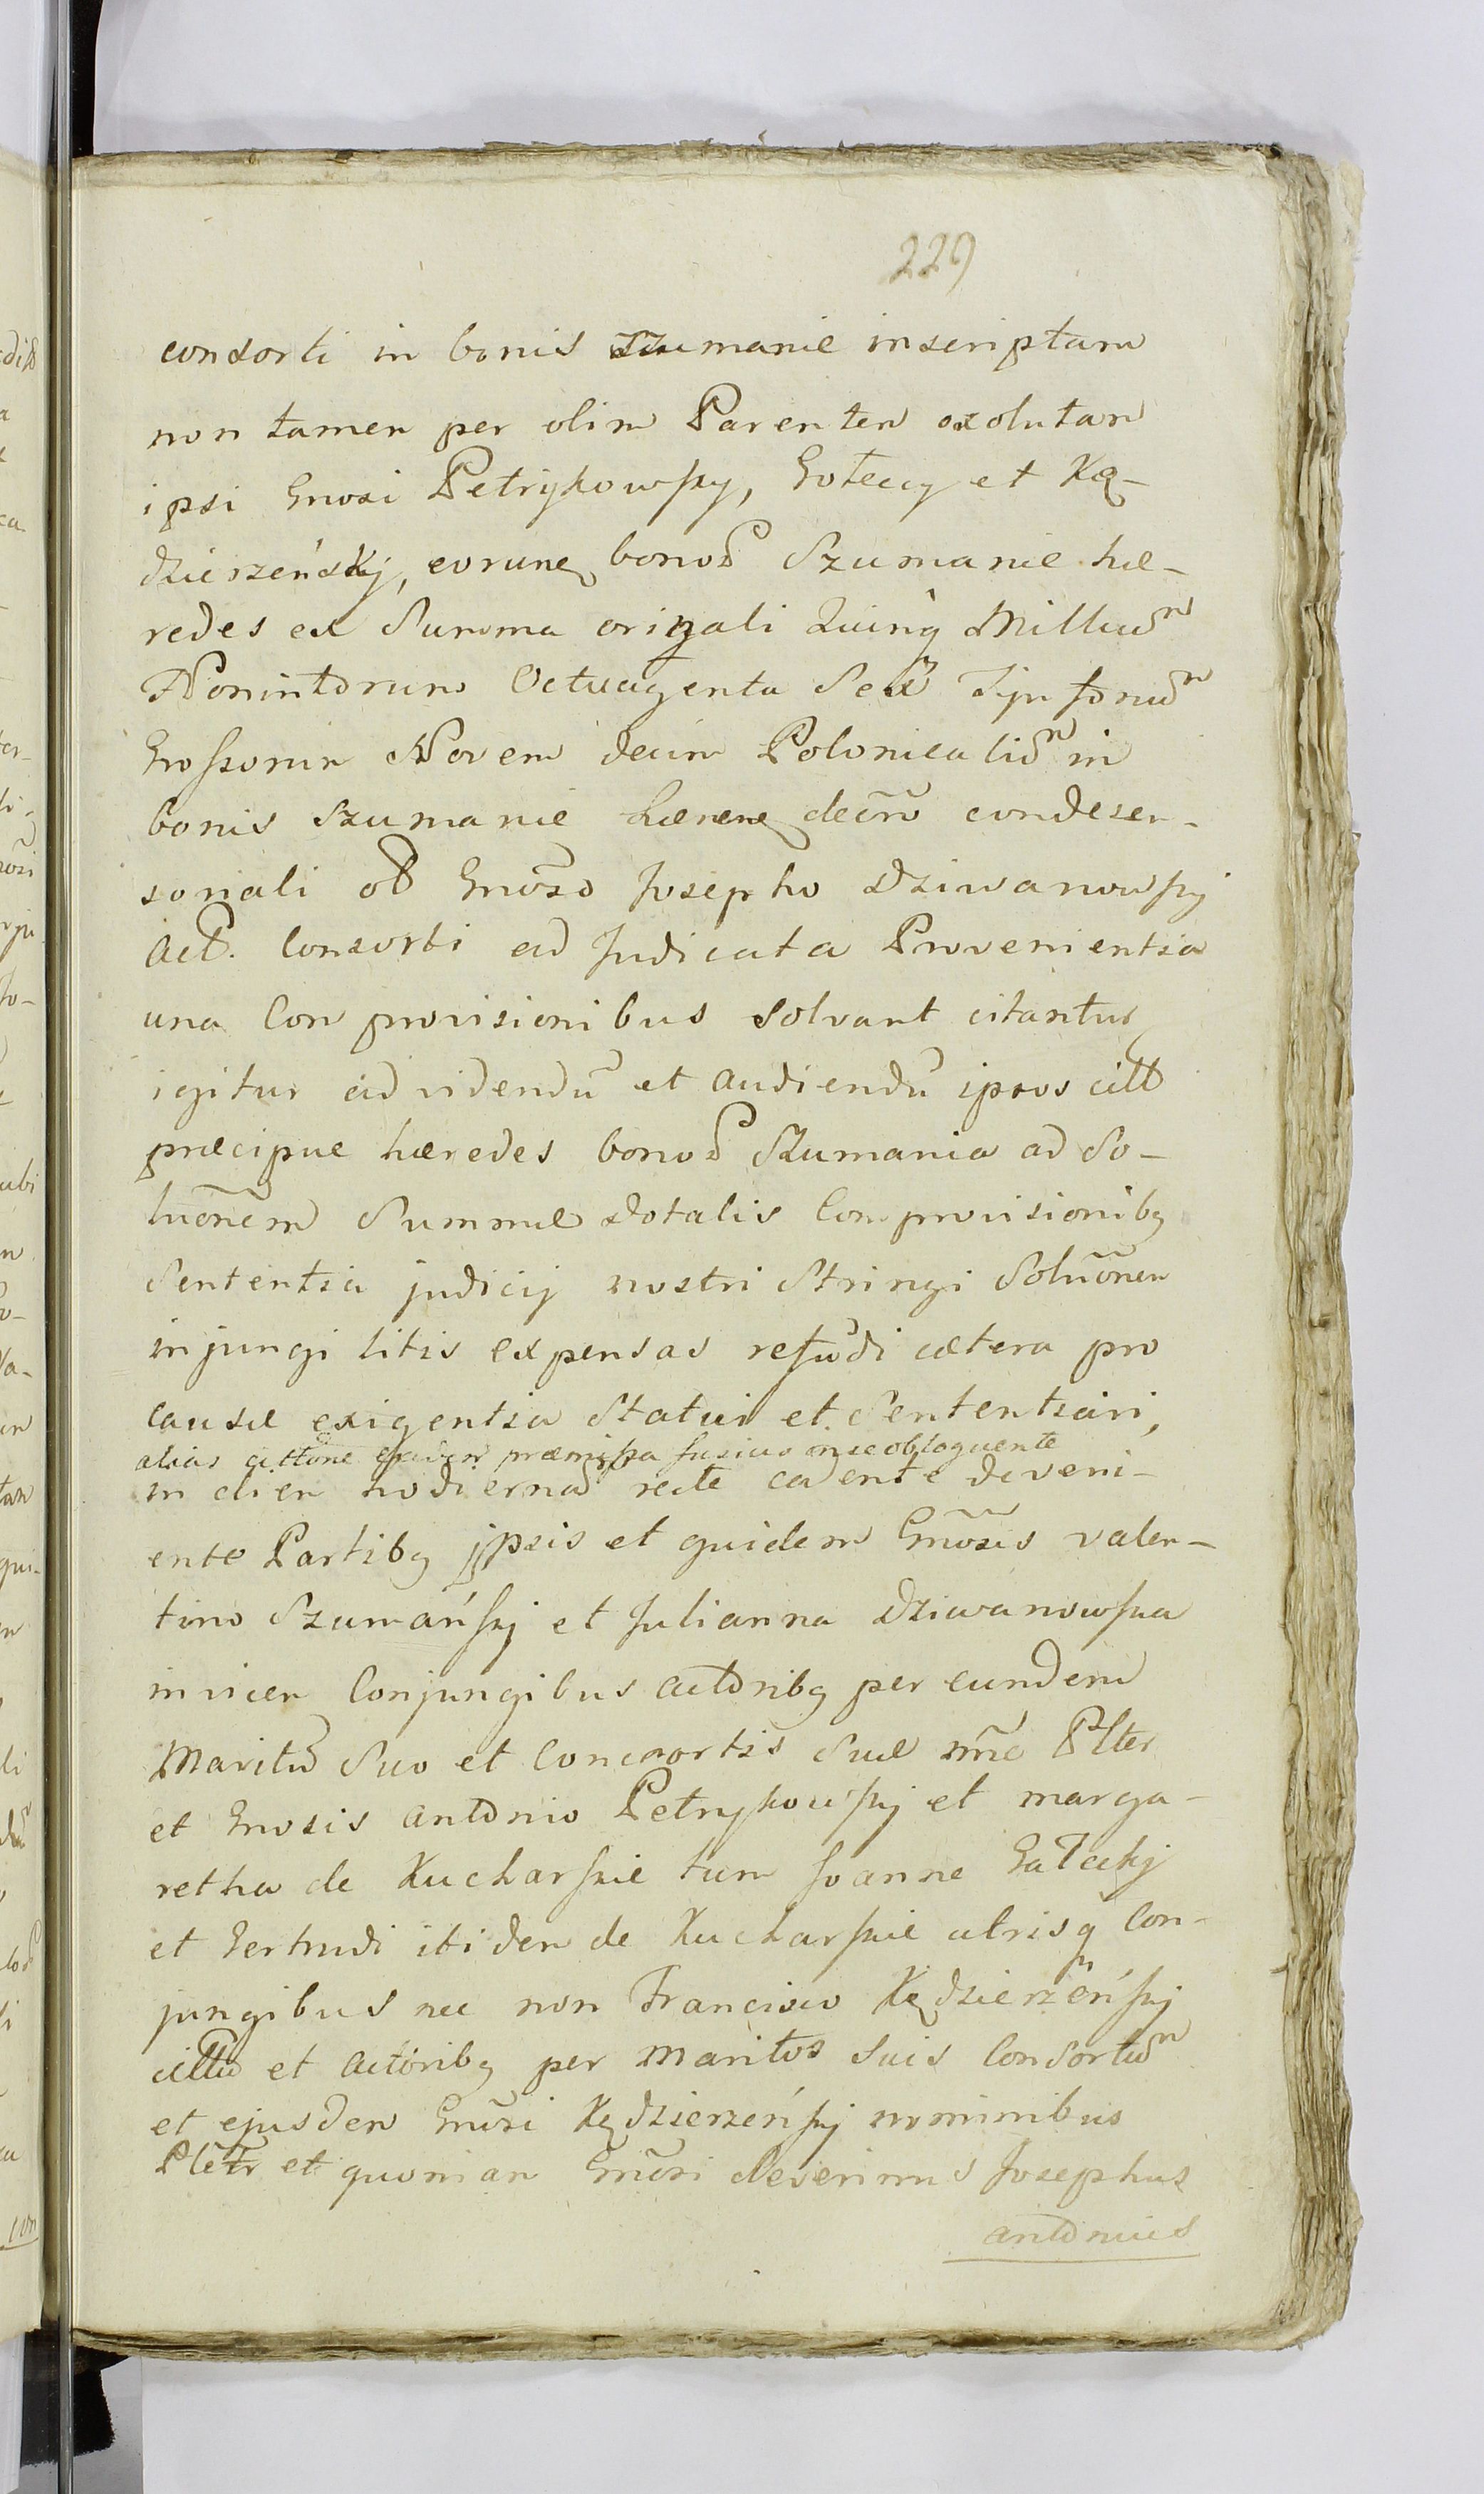 229
consorti in bonis Szumanie inscriptam
non tamen per olim Parentem exolutam
ipsi Gnosi Petrykowsky, Gotecy et Kę-
dzierzeńskÿ, eorunq bonoƶ Szumanie hæ-
redes ex Summa originali Quinq Milliu
Nonintorum Octuagenta Sex Tynfonu
Grossorum Novem decim Polonicaliu in
bonis Szumanie hærene decro condesen-
sonali ob Gnoso Josepho Dziwanowsky
act. Consorti ad Judicata Provenientia
una Con provisionibus Solvant citantur
igitur ad videndū et audiendū ipsos citt
præcipue hæredes bonoƶ Szumania ad So-
luōnem Summæ dotalis Con provisionibq
Sententia judicij nostri Stringi Soluōnem
injungi litis expensas refudi cætera pro
causæ exigentia Statui et Sententiari,
alias cittōne eadem præmissa fusius insc obloquente
in diem hodierna recte cadente deveni-
ente Partibq ipsis et quidem Gnōsis valen-
tino Szumańskj et Julianna Dziwanowska
invicem Conjungibus actoribq per eundem
Maritū Suo et Concsortis Suæ nnīe Plter
et Gnosis antonio Petrykowskj et marga-
retha de Kucharskie tum Joanne Gałeckj
et Gertrudi itidem de Kucharskie utrisq Con-
jungibus nec non Francisco Kędzierzeńskj
cittis et actōribq per maritos Suis Consortiū
et ejusdem Gnōsi Kędzierzeńskj nominibus
Pleter et quoniam Gnōsi Severinus Josephus
antonius